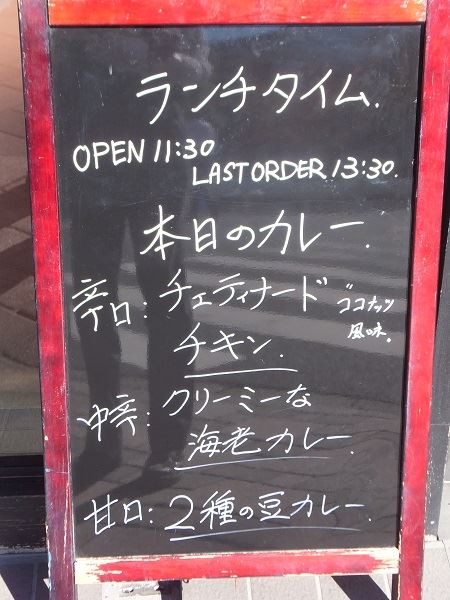 ランチタイム.
OPEN 11:30
LAST ORDER 13:30.
本日のカレー.
辛口: チェティナード ココナッツ
チキン. 風味.
中辛: クリーミーな
海老カレー.
甘口: 2種の豆カレー.